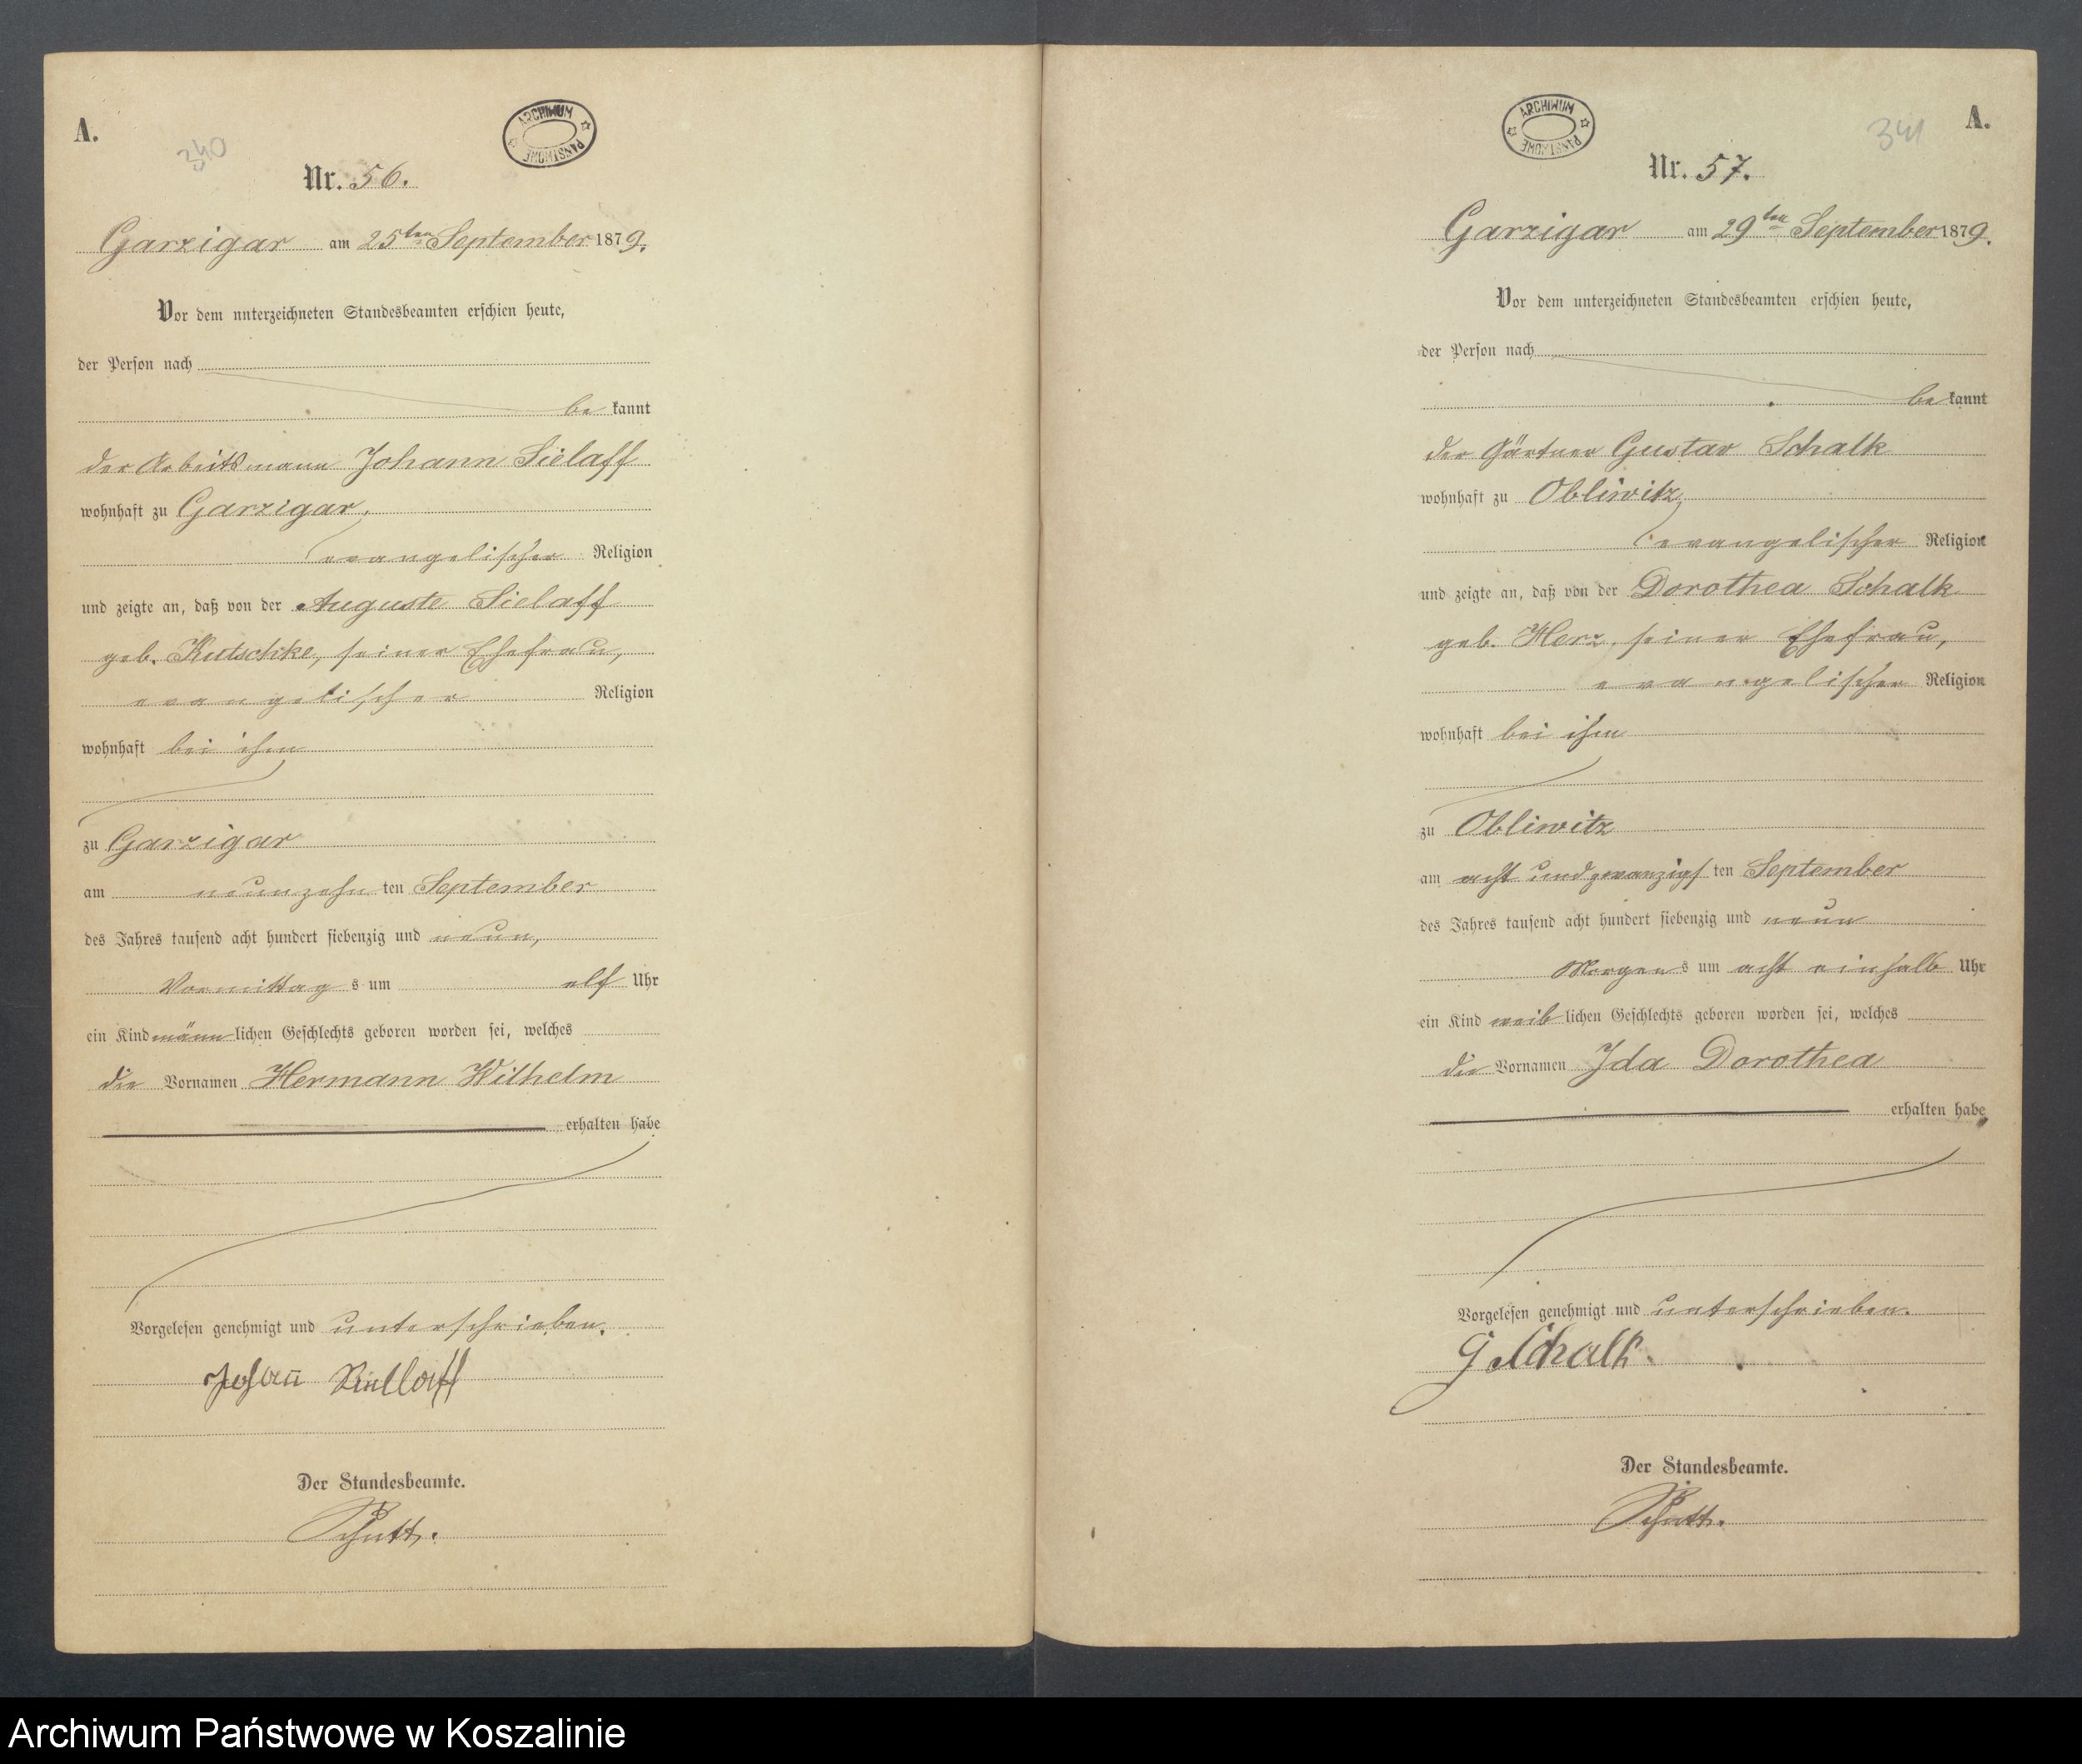 A.
340
ARCHIWUM PAŃSTWOWE
Nr. 56.
Garzigar am 25ten September 1879.
Vor dem unterzeichneten Standesbeamten erschien heute,
der Person nach
be kannt
der Arbeitsmann Johann Sielaff
wohnhaft zu Garzigar,
evangelischer Religion
und zeigte an, daß von der Auguste Sielaff
geb. Kutschke, seiner Ehefrau,
evangelischer Religion
wohnhaft bei ihm
zu Garzigar
am neunzehn ten September
des Jahres tausend acht hundert siebenzig und neun,
Vormittag s um elf Uhr
ein Kind männ lichen Geschlechts geboren worden sei, welches
die Vornamen Hermann Wilhelm
erhalten habe
Vorgelesen genehmigt und unterschrieben.
Johann Siellaff
Der Standesbeamte.
A.
341
ARCHIWUM PAŃSTWOWE
Nr. 57.
Garzigar am 29ten September 1879.
Vor dem unterzeichneten Standesbeamten erschien heute,
der Person nach
be kannt
der Gärtner Gustav Schalk
wohnhaft zu Obliwitz,
evangelischer Religion
und zeigte an, daß von der Dorothea Schalk
geb. Herz, seiner Ehefrau,
evangelischer Religion
wohnhaft bei ihm
zu Obliwitz
am acht und zwanzigs ten September
des Jahres tausend acht hundert siebenzig und neun
Morgen s um acht einhalb Uhr
ein Kind weib lichen Geschlechts geboren worden sei, welches
die Vornamen Ida Dorothea
erhalten habe
Vorgelesen genehmigt und unterschrieben.
G Schalk.
Der Standesbeamte.
Archiwum Państwowe w Koszalinie